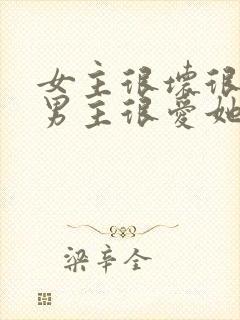 女主很坏很
男主很爱她
梁辛全